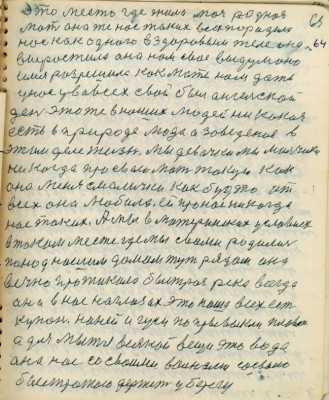 это место где жила моя родная
мать она те нас таких всех породила
нас как одного в здоровом теле она 64
вырастила она нам свое
разрешила как мать нам дать
у нас у всех свой был ангельской
ден это же в наших людей ни какой
есть в природе люда а заведения в
этим деле жизн. мы девочки мы мальчики
никогда про свою мать такую как
она меня смалички как будто от
всех она любила. ей про нас никогда
нас таких. А мы в материнских условиях
в таком месте где мы своими родились
под нашим домам тут рядом она
вечно протикала быстрая река всегда
она в нас на глазах это наше всех ест
купон. на ней и гуси
а для мытья всякой вещи это вода
она нас со своими волнами
быстратою держит у берегу